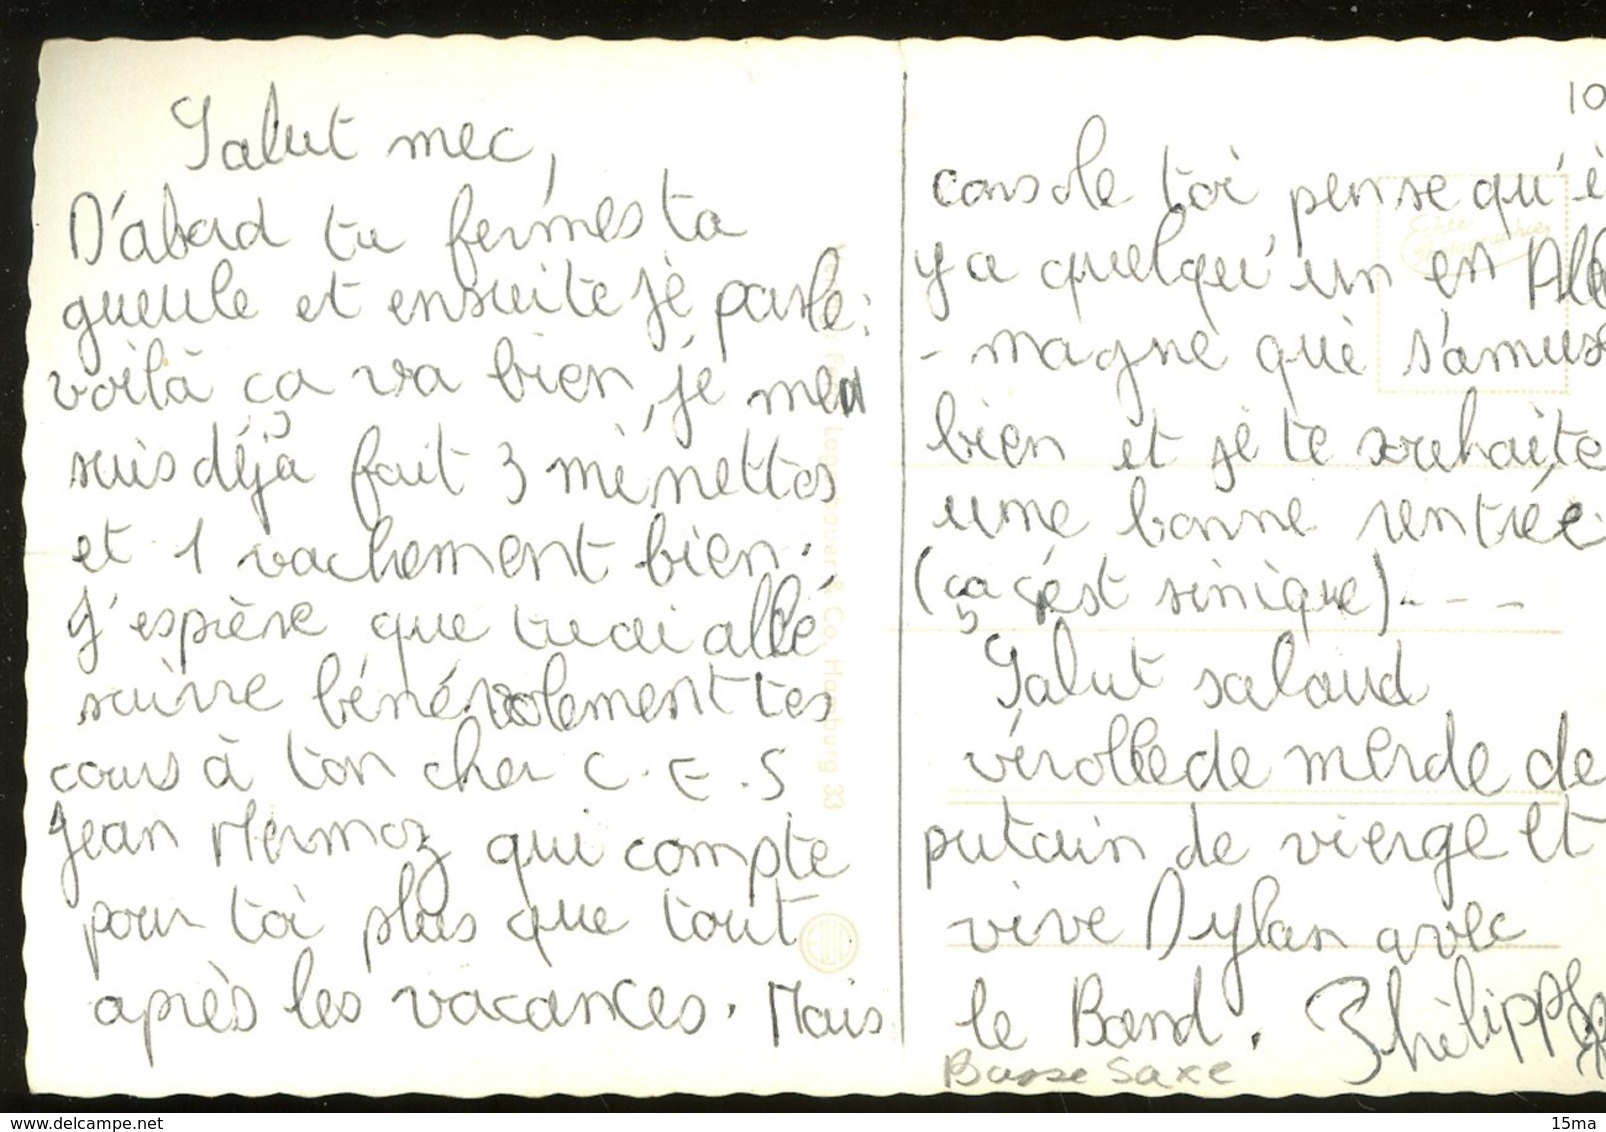 Salut mec,
D'abord tu fermes ta
gueule et ensuite je parle :
voilà ça va bien, je me
suis déjà fait 3 minettes
et 1 vachement bien.
J'espère que tu ai allé
suivre bénévolement tes
cours à ton cher C.E.S
Jean Mermoz qui compte
pour toi plus que tout
après les vacances. Mais
10
console toi pense qu'i
y a quelqu'un en Alle
- magne qui s'amuse
bien et je te souhaite
une bonne rentrée.
(ça c'est sinique)----
Salut salaud
vérollé de merde de
putain de vierge et
vive Dylan avec
le Band. Philippe
Basse Saxe
& Co, Hamburg 33
www.delcampe.net
15ma